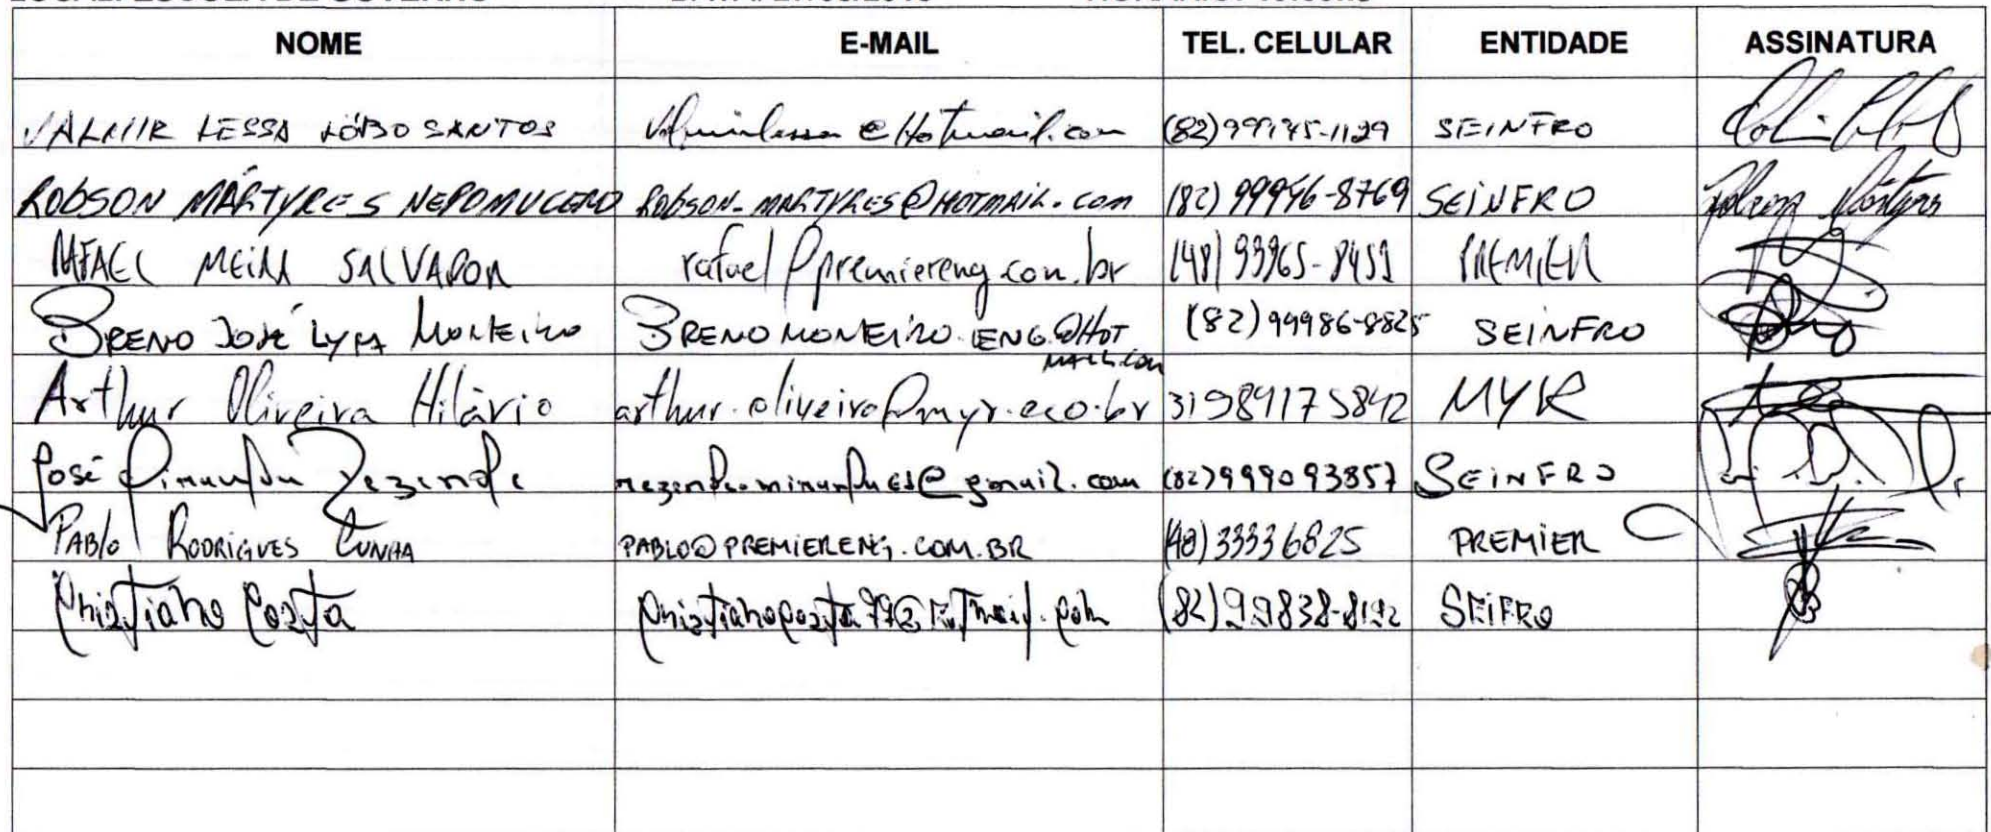 NOME E-MAIL TEL. CELULAR ENTIDADE ASSINATURA
VALMIR LESSA LÔBO SANTOS Valmirlessa@Hotmail.com (82) 99145-1129 SEINFRO
ROBSON MÁRTYRES NEPOMUCENO ROBSON-MARTYRES@HOTMAIL.com (82) 99996-8769 SEINFRO
RAFAEL MEIRA SALVADOR rafael@premiereng.com.br (48) 93965-8459 PREMIER
BRENO JOSÉ LYRA MONTEIRO BRENOMONTEIRO.ENG@HOT (82) 99986-8825 SEINFRO
MAIL.COM
Arthur Oliveira Hilário arthur.oliveira@myr.eco.br 31984175842 MYR
José Rezende @gmail.com (82) 999093857 SEINFRO
PABLO RODRIGUES CUNHA PABLO@PREMIERENG.COM.BR (48) 33336825 PREMIER
Christiano Costa (82) 99838-8192 SEIFRO